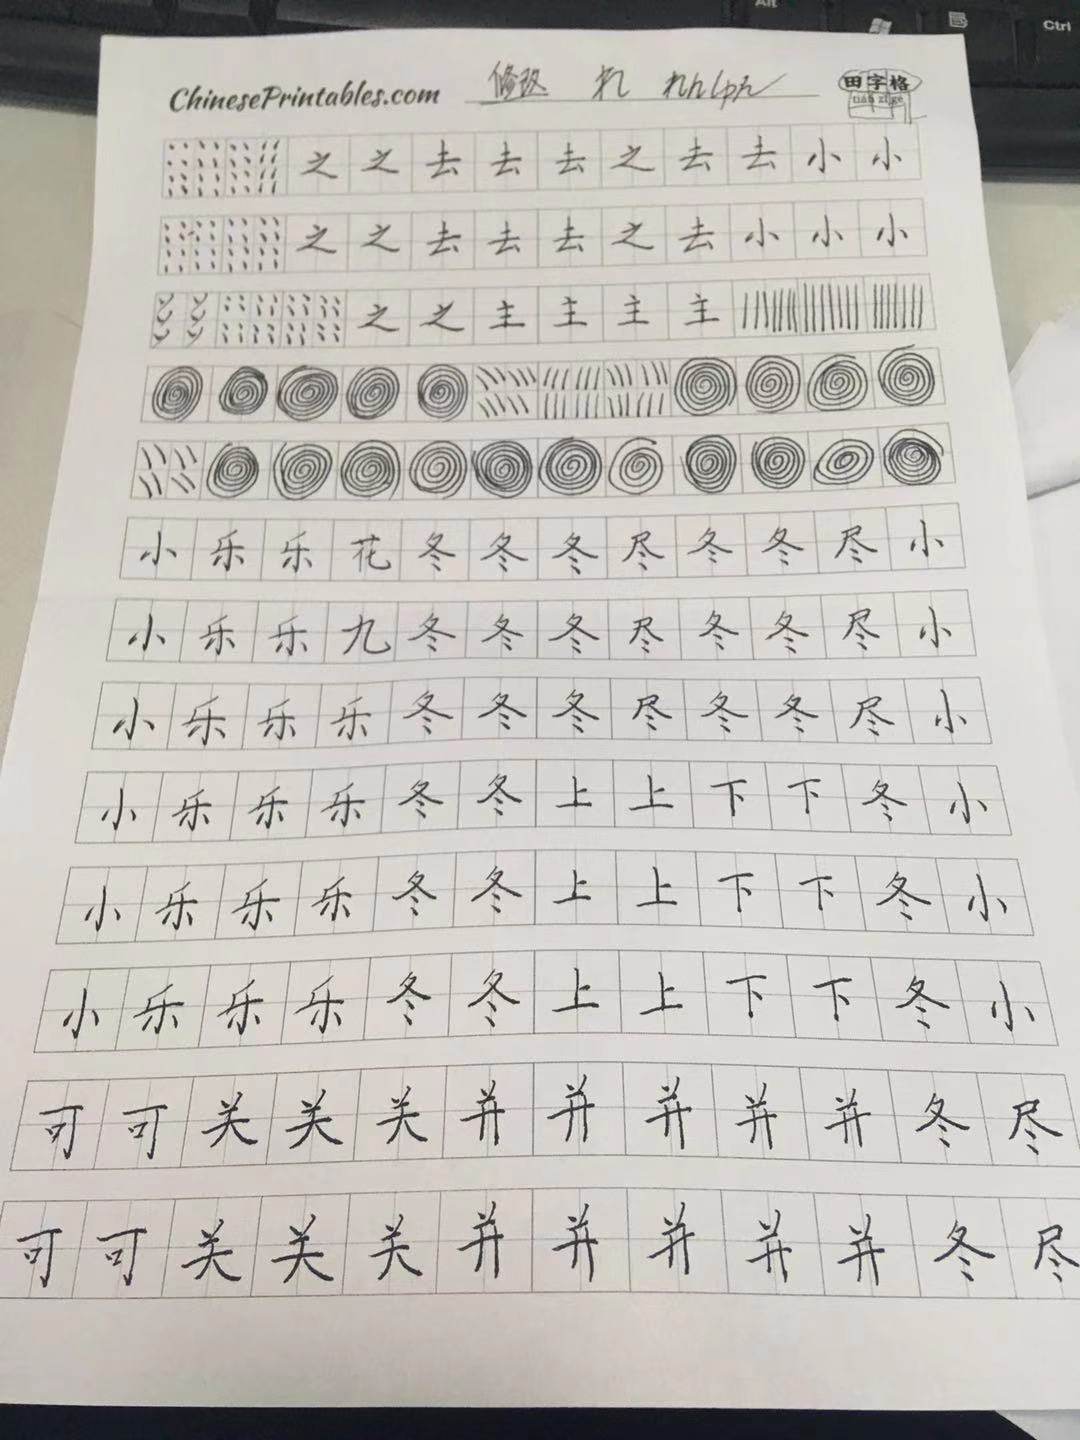 ChinesePrintables.com 修改 田字格
tián zì gé
之 之 去 去 去 之 去 去 小 小
之 之 去 去 去 之 去 小 小 小
之 之 主 主 主 主
小 乐 乐 花 冬 冬 冬 尽 冬 冬 尽 小
小 乐 乐 九 冬 冬 冬 尽 冬 冬 尽 小
小 乐 乐 乐 冬 冬 冬 尽 冬 冬 尽 小
小 乐 乐 乐 冬 冬 上 上 下 下 冬 小
小 乐 乐 乐 冬 冬 上 上 下 下 冬 小
小 乐 乐 乐 冬 冬 上 上 下 下 冬 小
可 可 关 关 关 并 并 并 并 并 冬 尽
可 可 关 关 关 并 并 并 并 并 冬 尽
Alt
Ctrl